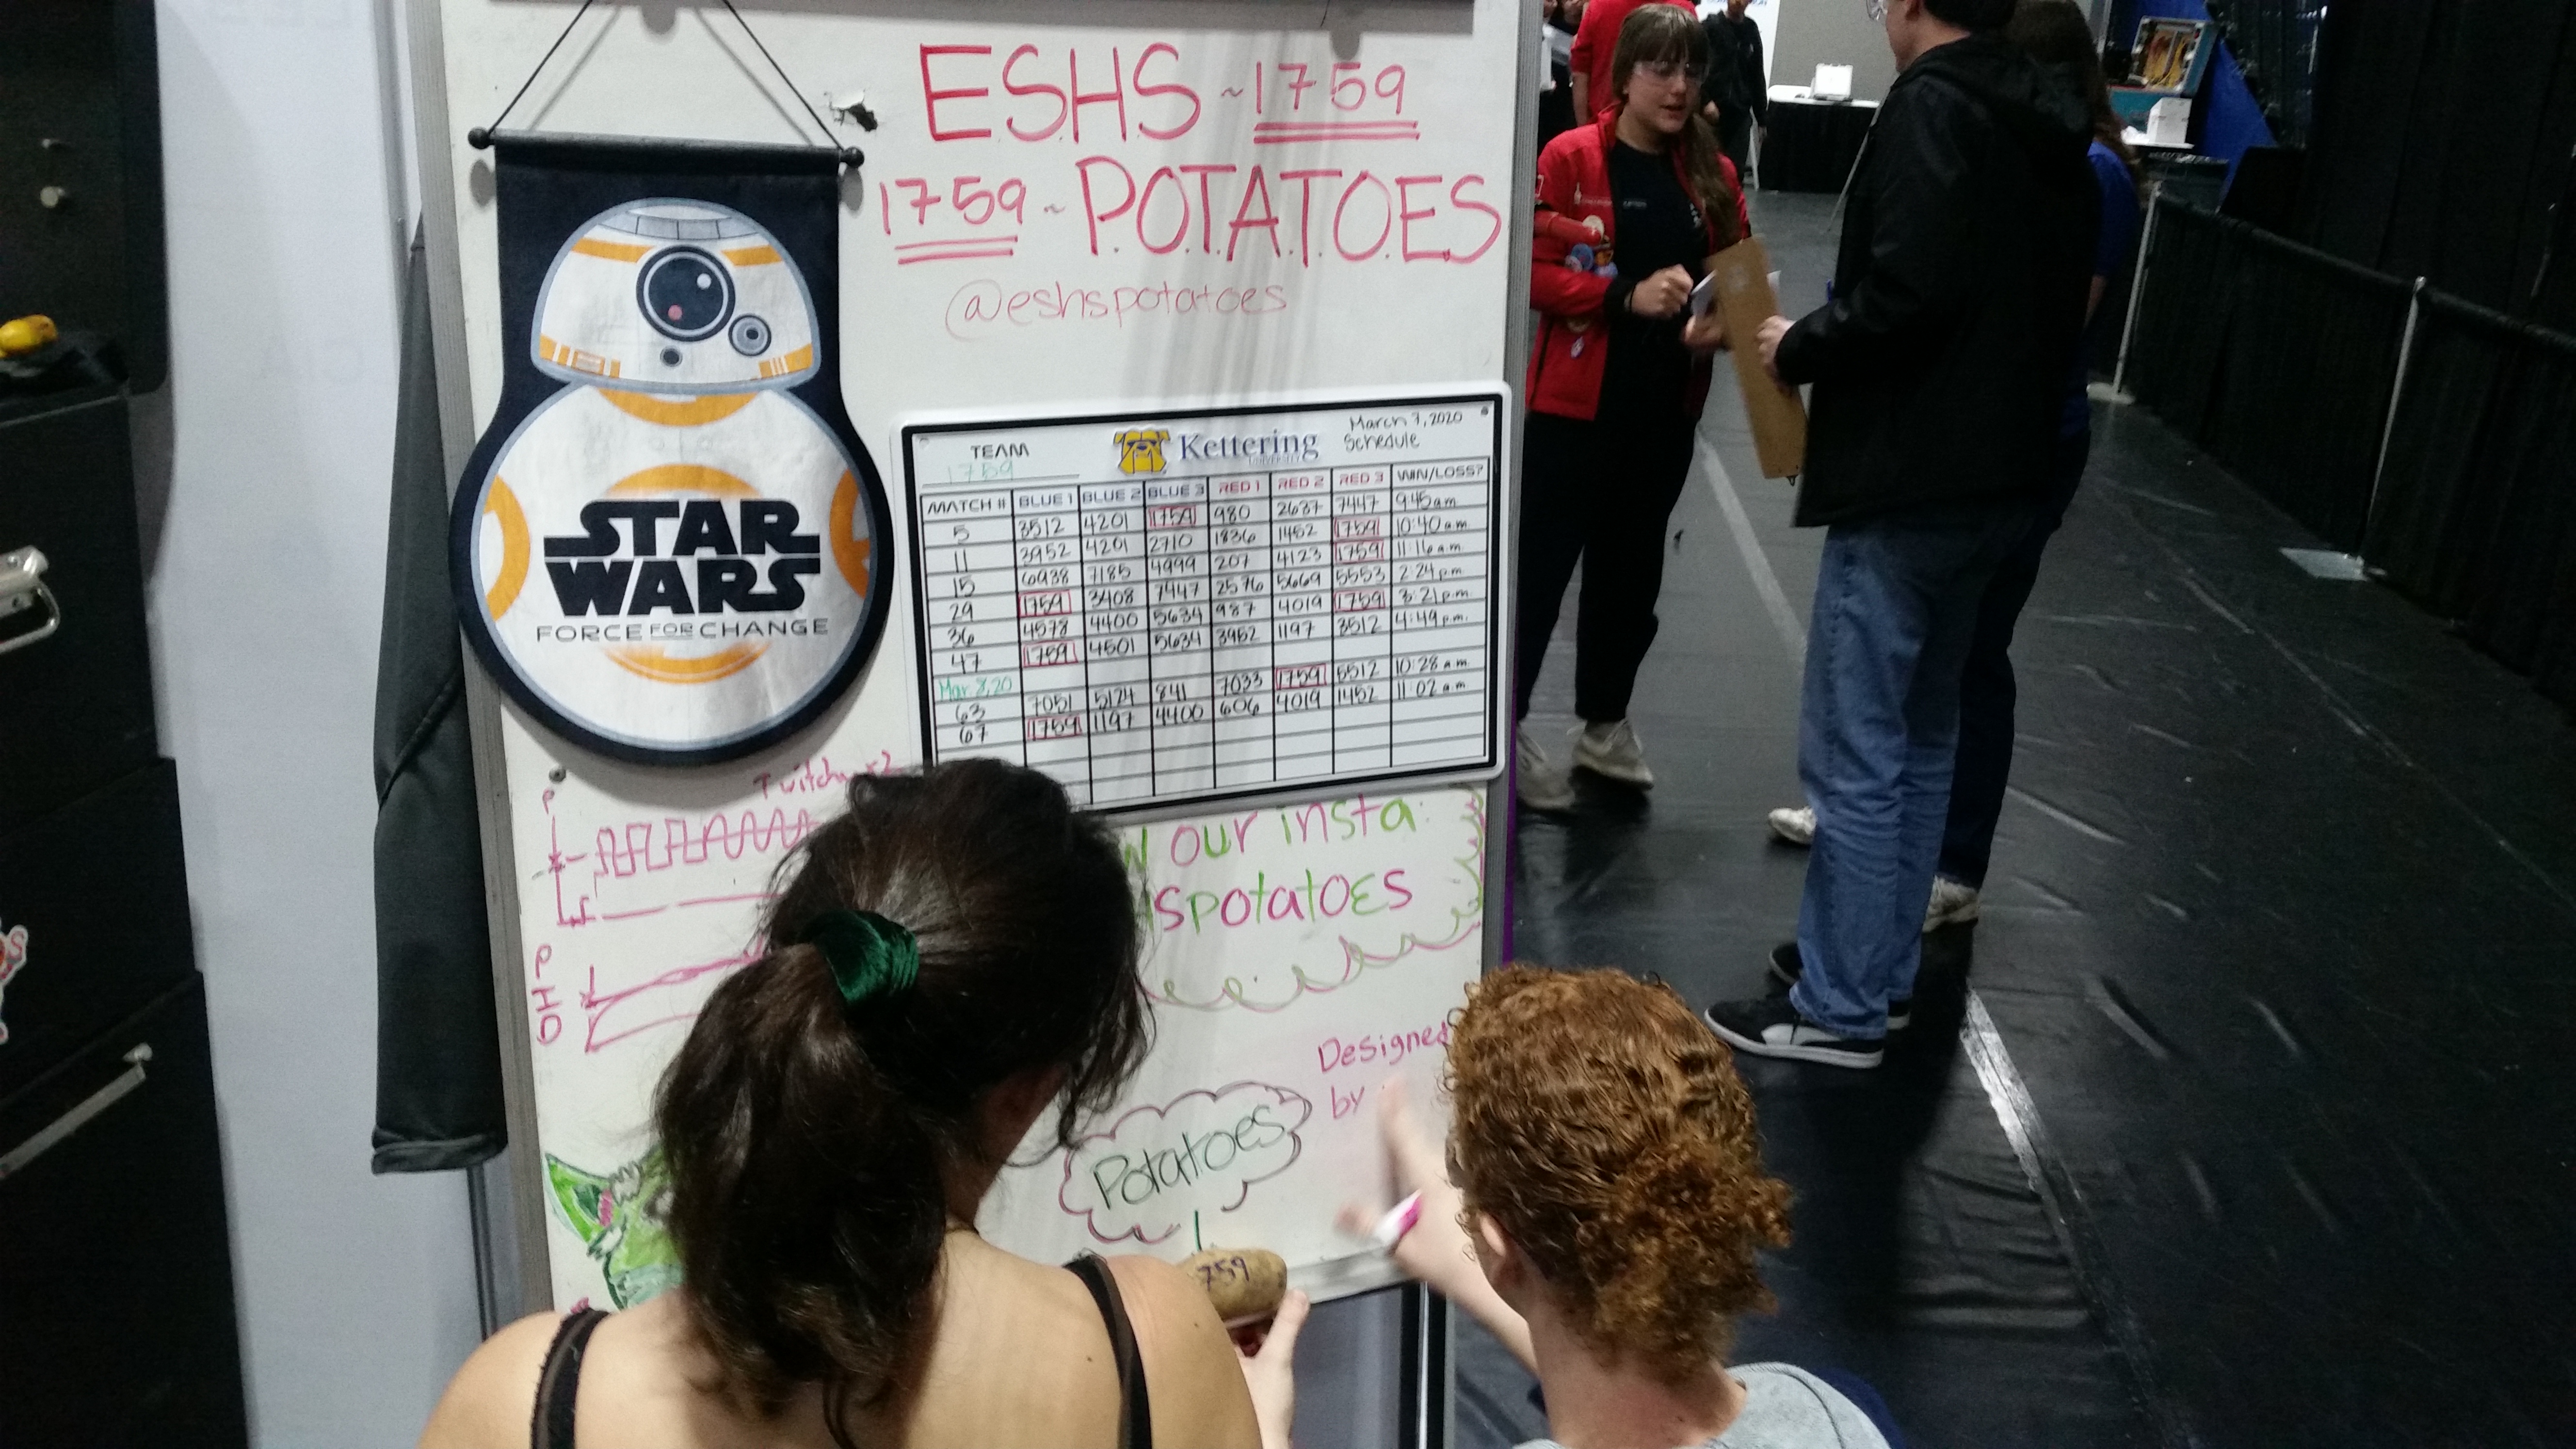 E.S.H.S ~ 1759
1759 ~ P.O.T.A.T.O.E.S
@eshspotatoes
STAR
WARS
FORCE FOR CHANGE
TEAM 1759
Kettering
UNIVERSITY
March 7, 2020
Schedule
MATCH # BLUE 1 BLUE 2 BLUE 3 RED 1 RED 2 RED 3 WIN/LOSS?
5 3512 4201 1759 980 2637 7447 9:45 a.m.
11 3952 4201 2710 1836 1452 1759 10:40 a.m.
15 6938 7185 4999 207 4123 1759 11:16 a.m.
29 1759 3408 7447 2576 5669 5553 2:24 p.m.
36 4578 4400 5634 987 4019 1759 3:21 p.m.
47 1759 4501 5634 3952 1197 3512 4:49 p.m.
Mar. 8, 20
63 7051 5124 841 7033 1759 5512 10:28 a.m.
67 1759 1197 4400 606 4019 1452 11:02 a.m.
P
our insta:
spotatoes
P
I
D
Designed
by
Potatoes
759